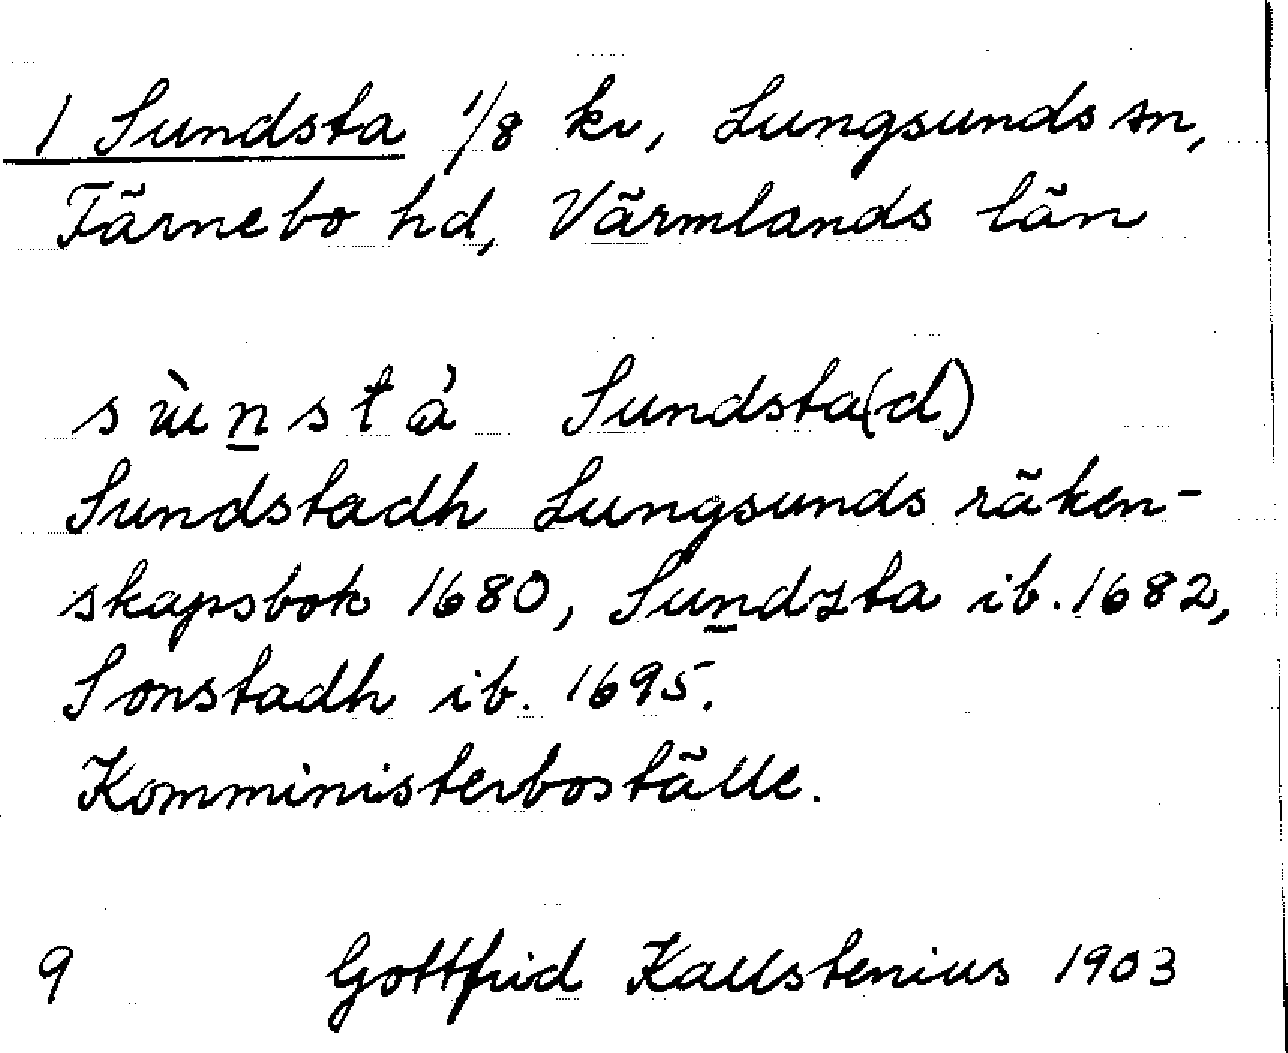 1 Sundsta 1/8 kr, Lungsunds sn,
Färnebo hd, Värmlands län
sùnstà Sundsta(d)
Sundstadh Lungsunds räken-
skapsbok 1680, Sundzta ib. 1682,
Sonstadh ib. 1695.
Komministerboställe.
9 Gottfrid Kallstenius 1903